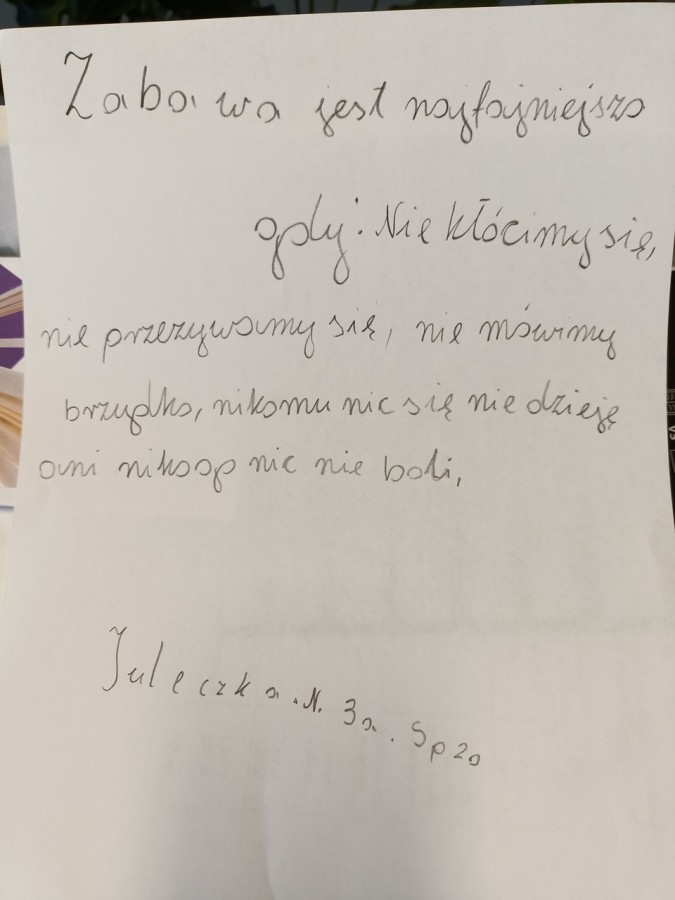 Zabawa jest najfajniejsza
gdy: Nie kłócimy się,
nie przezywamy się, nie mówimy
brzydko, nikomu nic się nie dzieję
ani nikogo nic nie boli,
Juleczka. N. 3a. Sp20